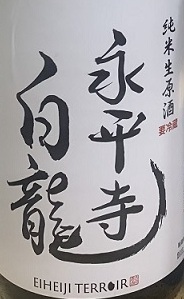 純米生原酒
要冷蔵
永平寺
白龍
EIHEIJI TERROIR